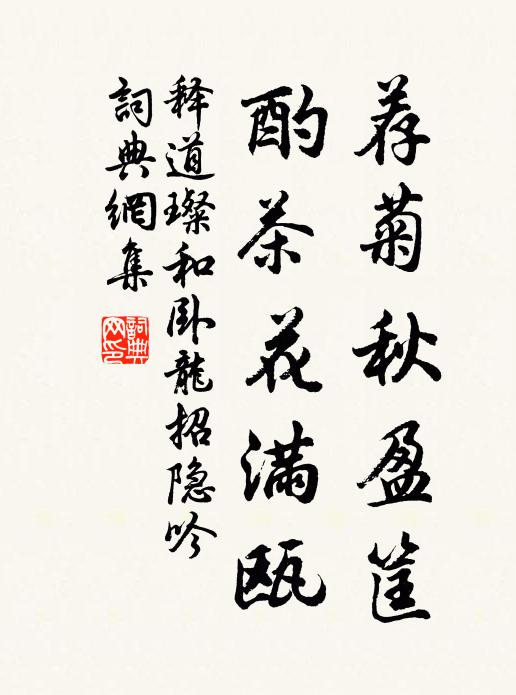 荐菊秋盈筐
酌茶花满瓯
释道璨和卧龍招隐吟
詞典網集
詞典网印